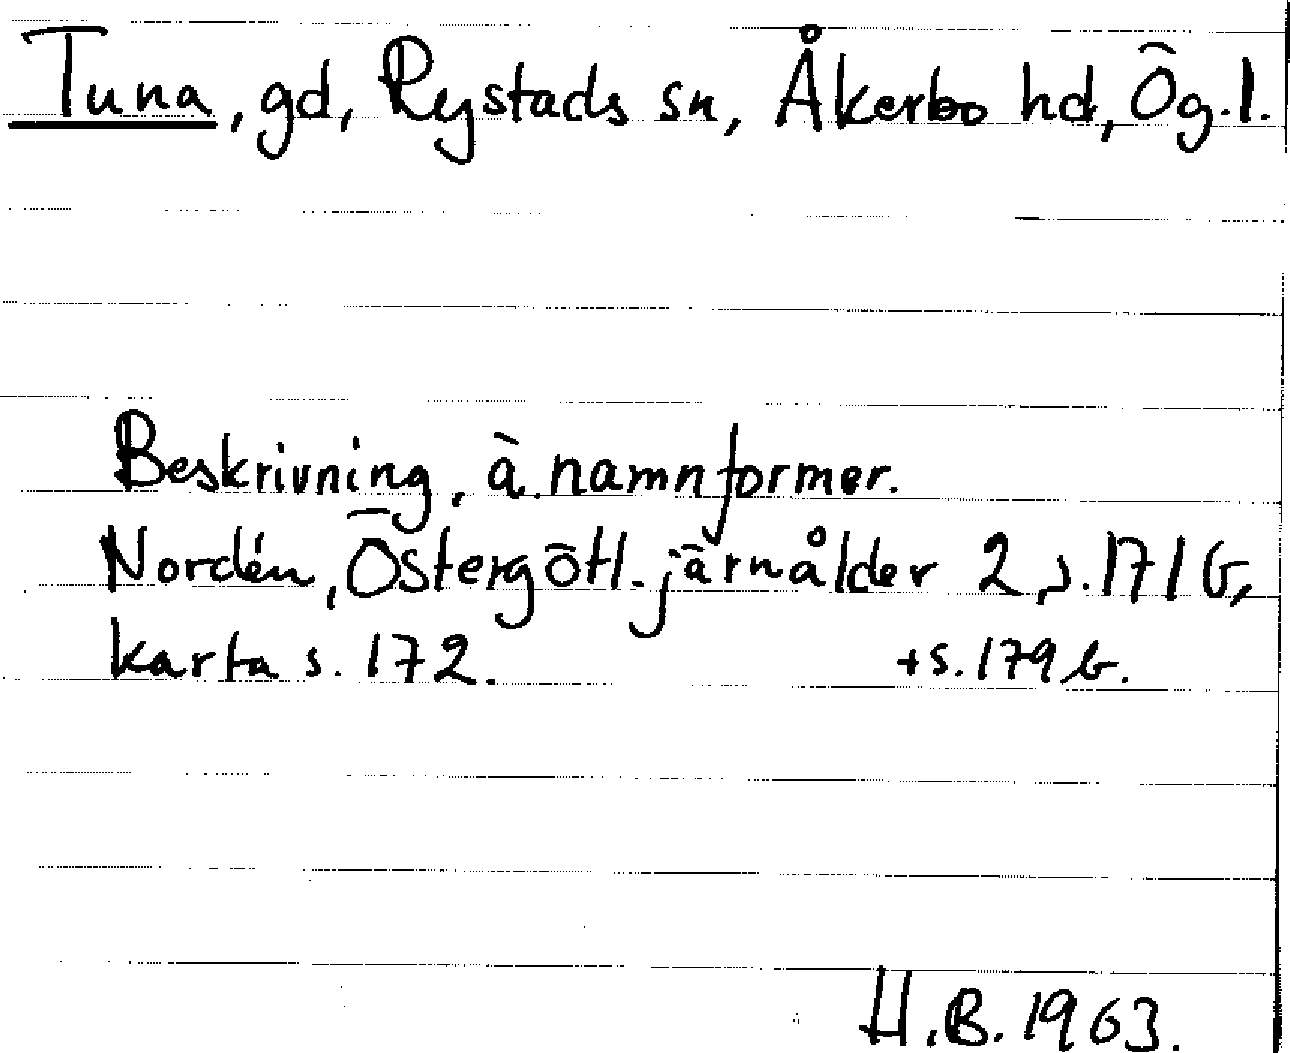 Tuna, gd, Rystads sn, Åkerbo hd, Ög.l.
Beskrivning, ä. namnformer.
Nordén, Östergötl. järnålder 2, s. 171 b,
karta s. 172. + s. 179 b.
H.B. 1963.